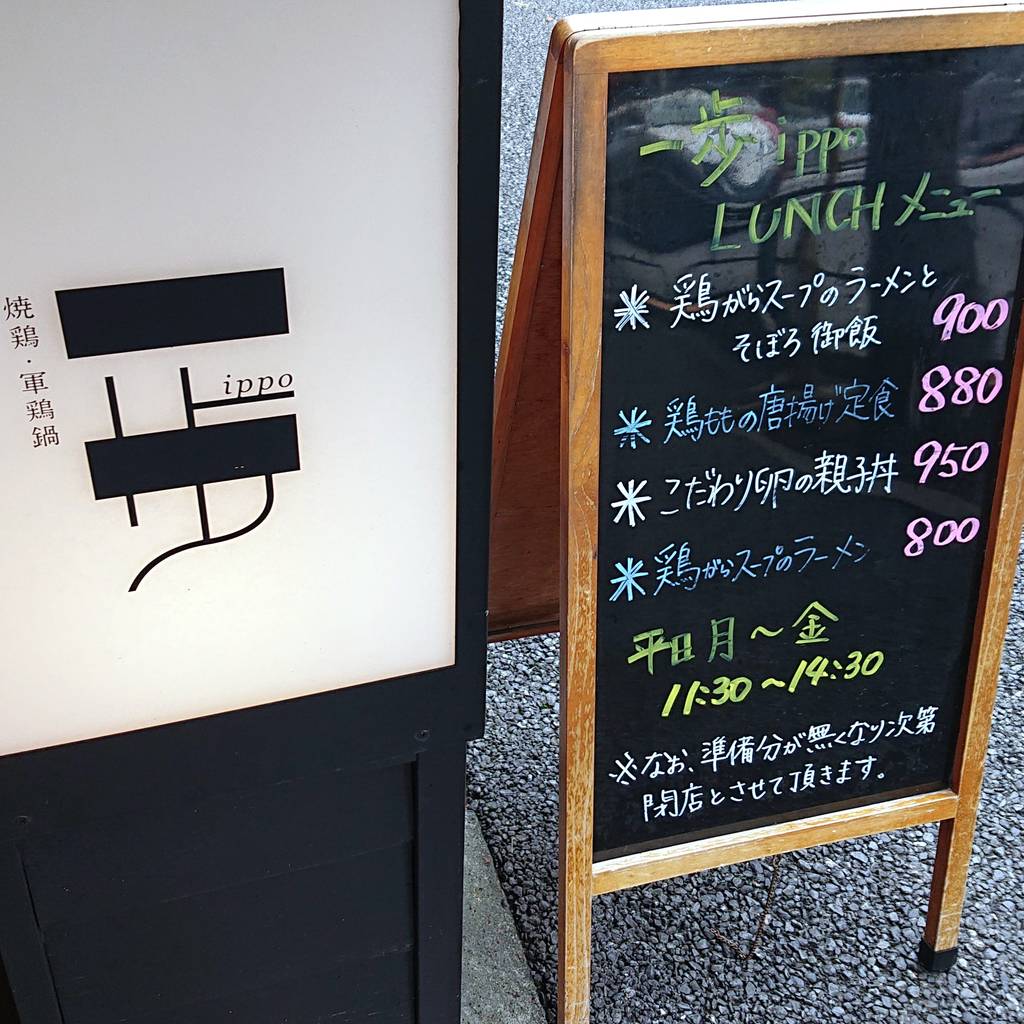 焼鶏・軍鶏鍋
一歩
ippo
一歩 ippo
LUNCH メニュー
＊鶏がらスープのラーメンと
そぼろ御飯 900
＊鶏ももの唐揚げ定食 880
＊こだわり卵の親子丼 950
＊鶏がらスープのラーメン 800
平日 月～金
11:30～14:30
※なお、準備分が無くなり次第
閉店とさせて頂きます。